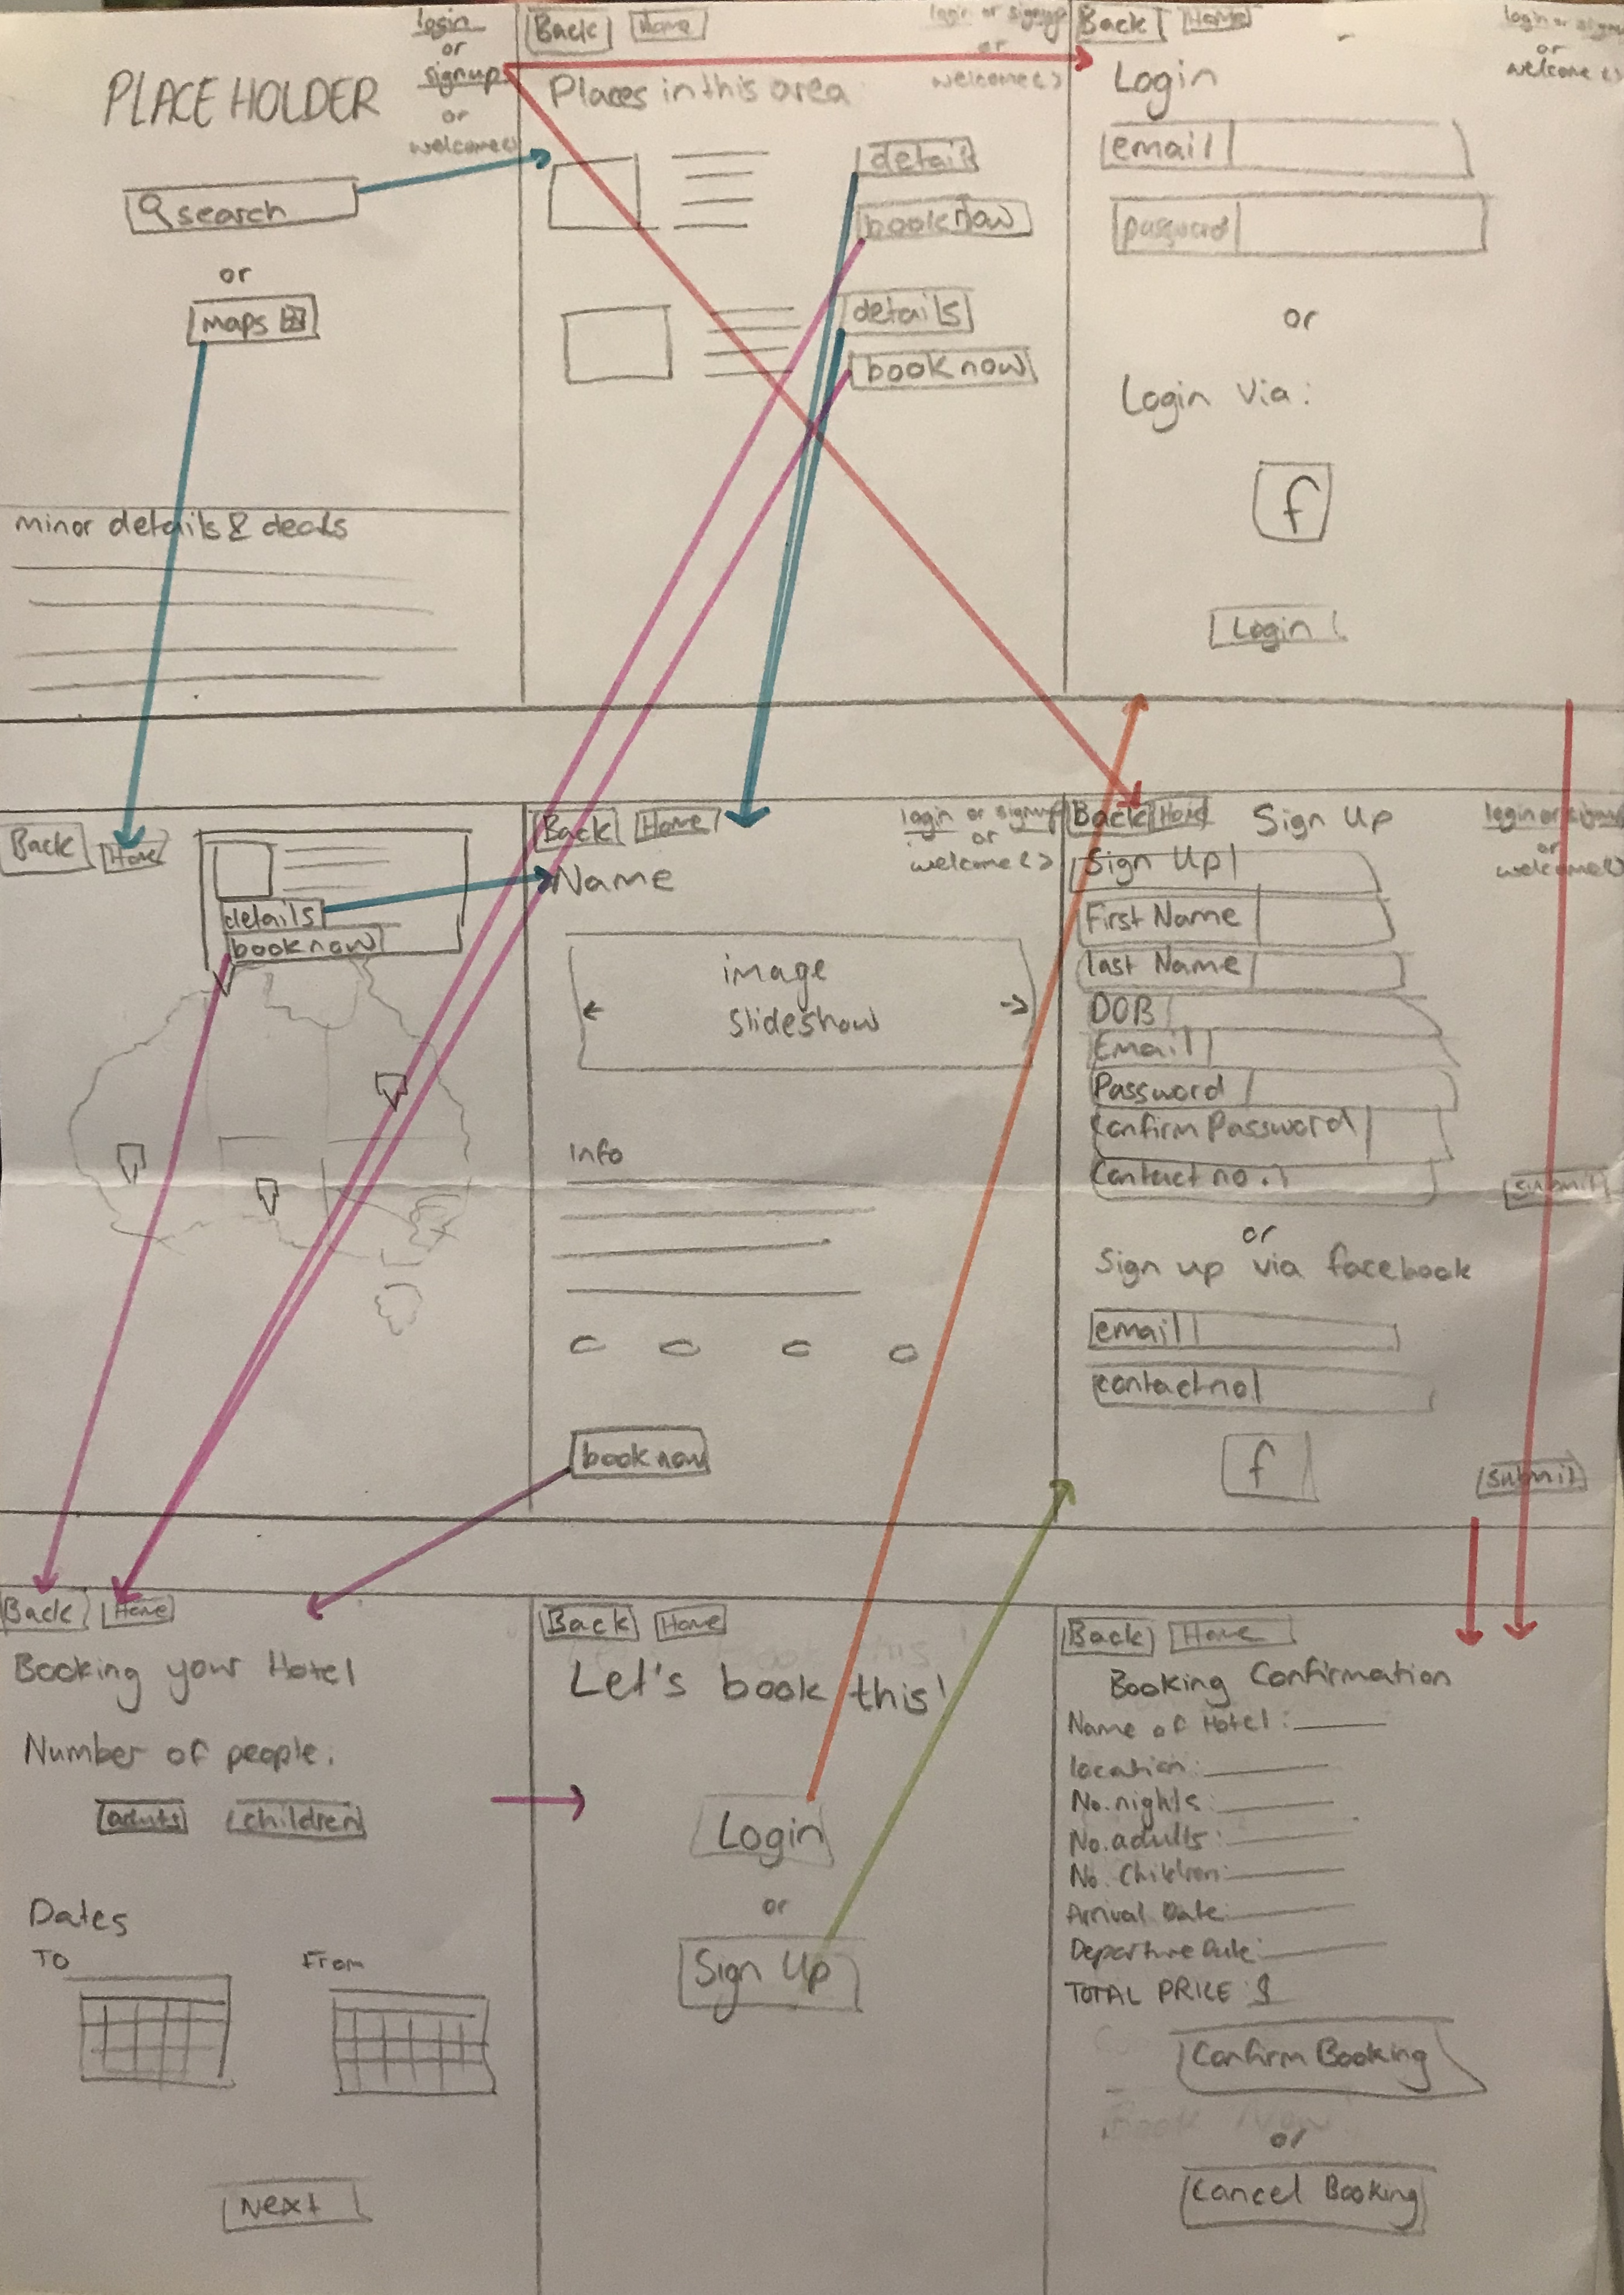 login
or
signup
or
welcome<>
PLACE HOLDER
search
or
maps
minor details & deals
Back Home
login or signup
or
welcome<>
Places in this area
detail
book now
details
book now
Back Home
login or signup
or
welcome<>
Login
email
password
or
Login via:
f
Login
Back Home
details
book now
Back Home
login or signup
or
welcome<>
Name
image
slideshow
Info
book now
Back Home Sign Up
login or signup
or
welcome<>
Sign Up
First Name
last Name
DOB
Email
Password
Confirm Password
Contact no.
submit
or
Sign up via facebook
email
contact no
f
submit
Back Home
Booking your Hotel
Number of people:
adults children
Dates
TO From
Next
Back Home
Let's book this!
Login
or
Sign Up
Back Home
Booking Confirmation
Name of Hotel:
location:
No. nights:
No. adults:
No. Children:
Arrival Date:
Departure Date:
TOTAL PRICE $
Confirm Booking
or
Cancel Booking